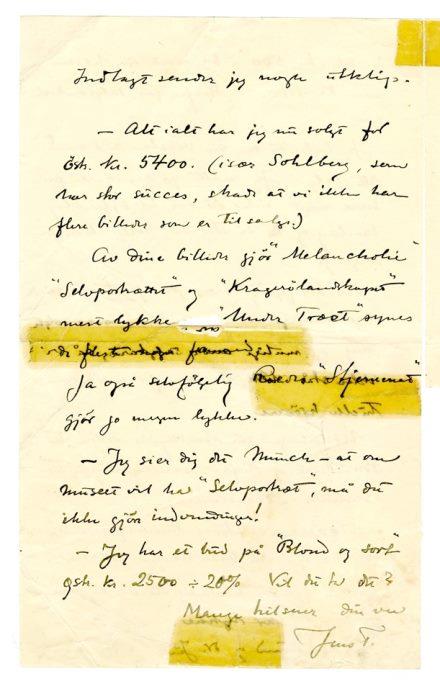 Indlagt sender jeg nogle utklip.
— Alt ialt har jeg nu solgt for
östr. Kr. 5400. (især Sohlberg, som
har stor succes, skade at vi ikke har
flere billeder som er til salgs.)
Av dine billeder gjör "Melancholie"
"Selvportrættet" og "Kragerölandskapet"
mest lykke. "Under Træet" synes
Ja også selvfölgelig "Stjernenat"
gjör jo megen lykke.
— Jeg sier dig det Munch — at om
museet vil ha "Selvportræt", må du
ikke gjöre indvendinger!
— Jeg har et bud på "Blond og sort"
östr. Kr. 2500 ÷ 20% Vil du ta det?
Mange hilsner din ven
Jens T.